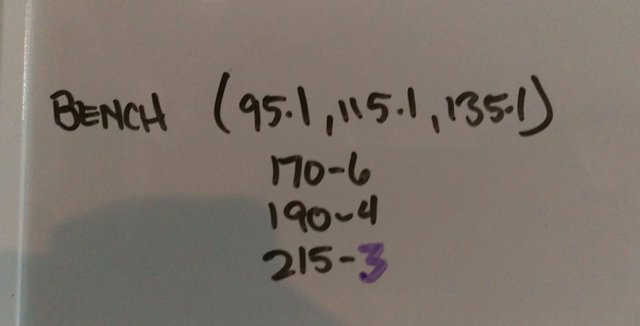 BENCH (95.1, 115.1, 135.1)
170-6
190-4
215-3